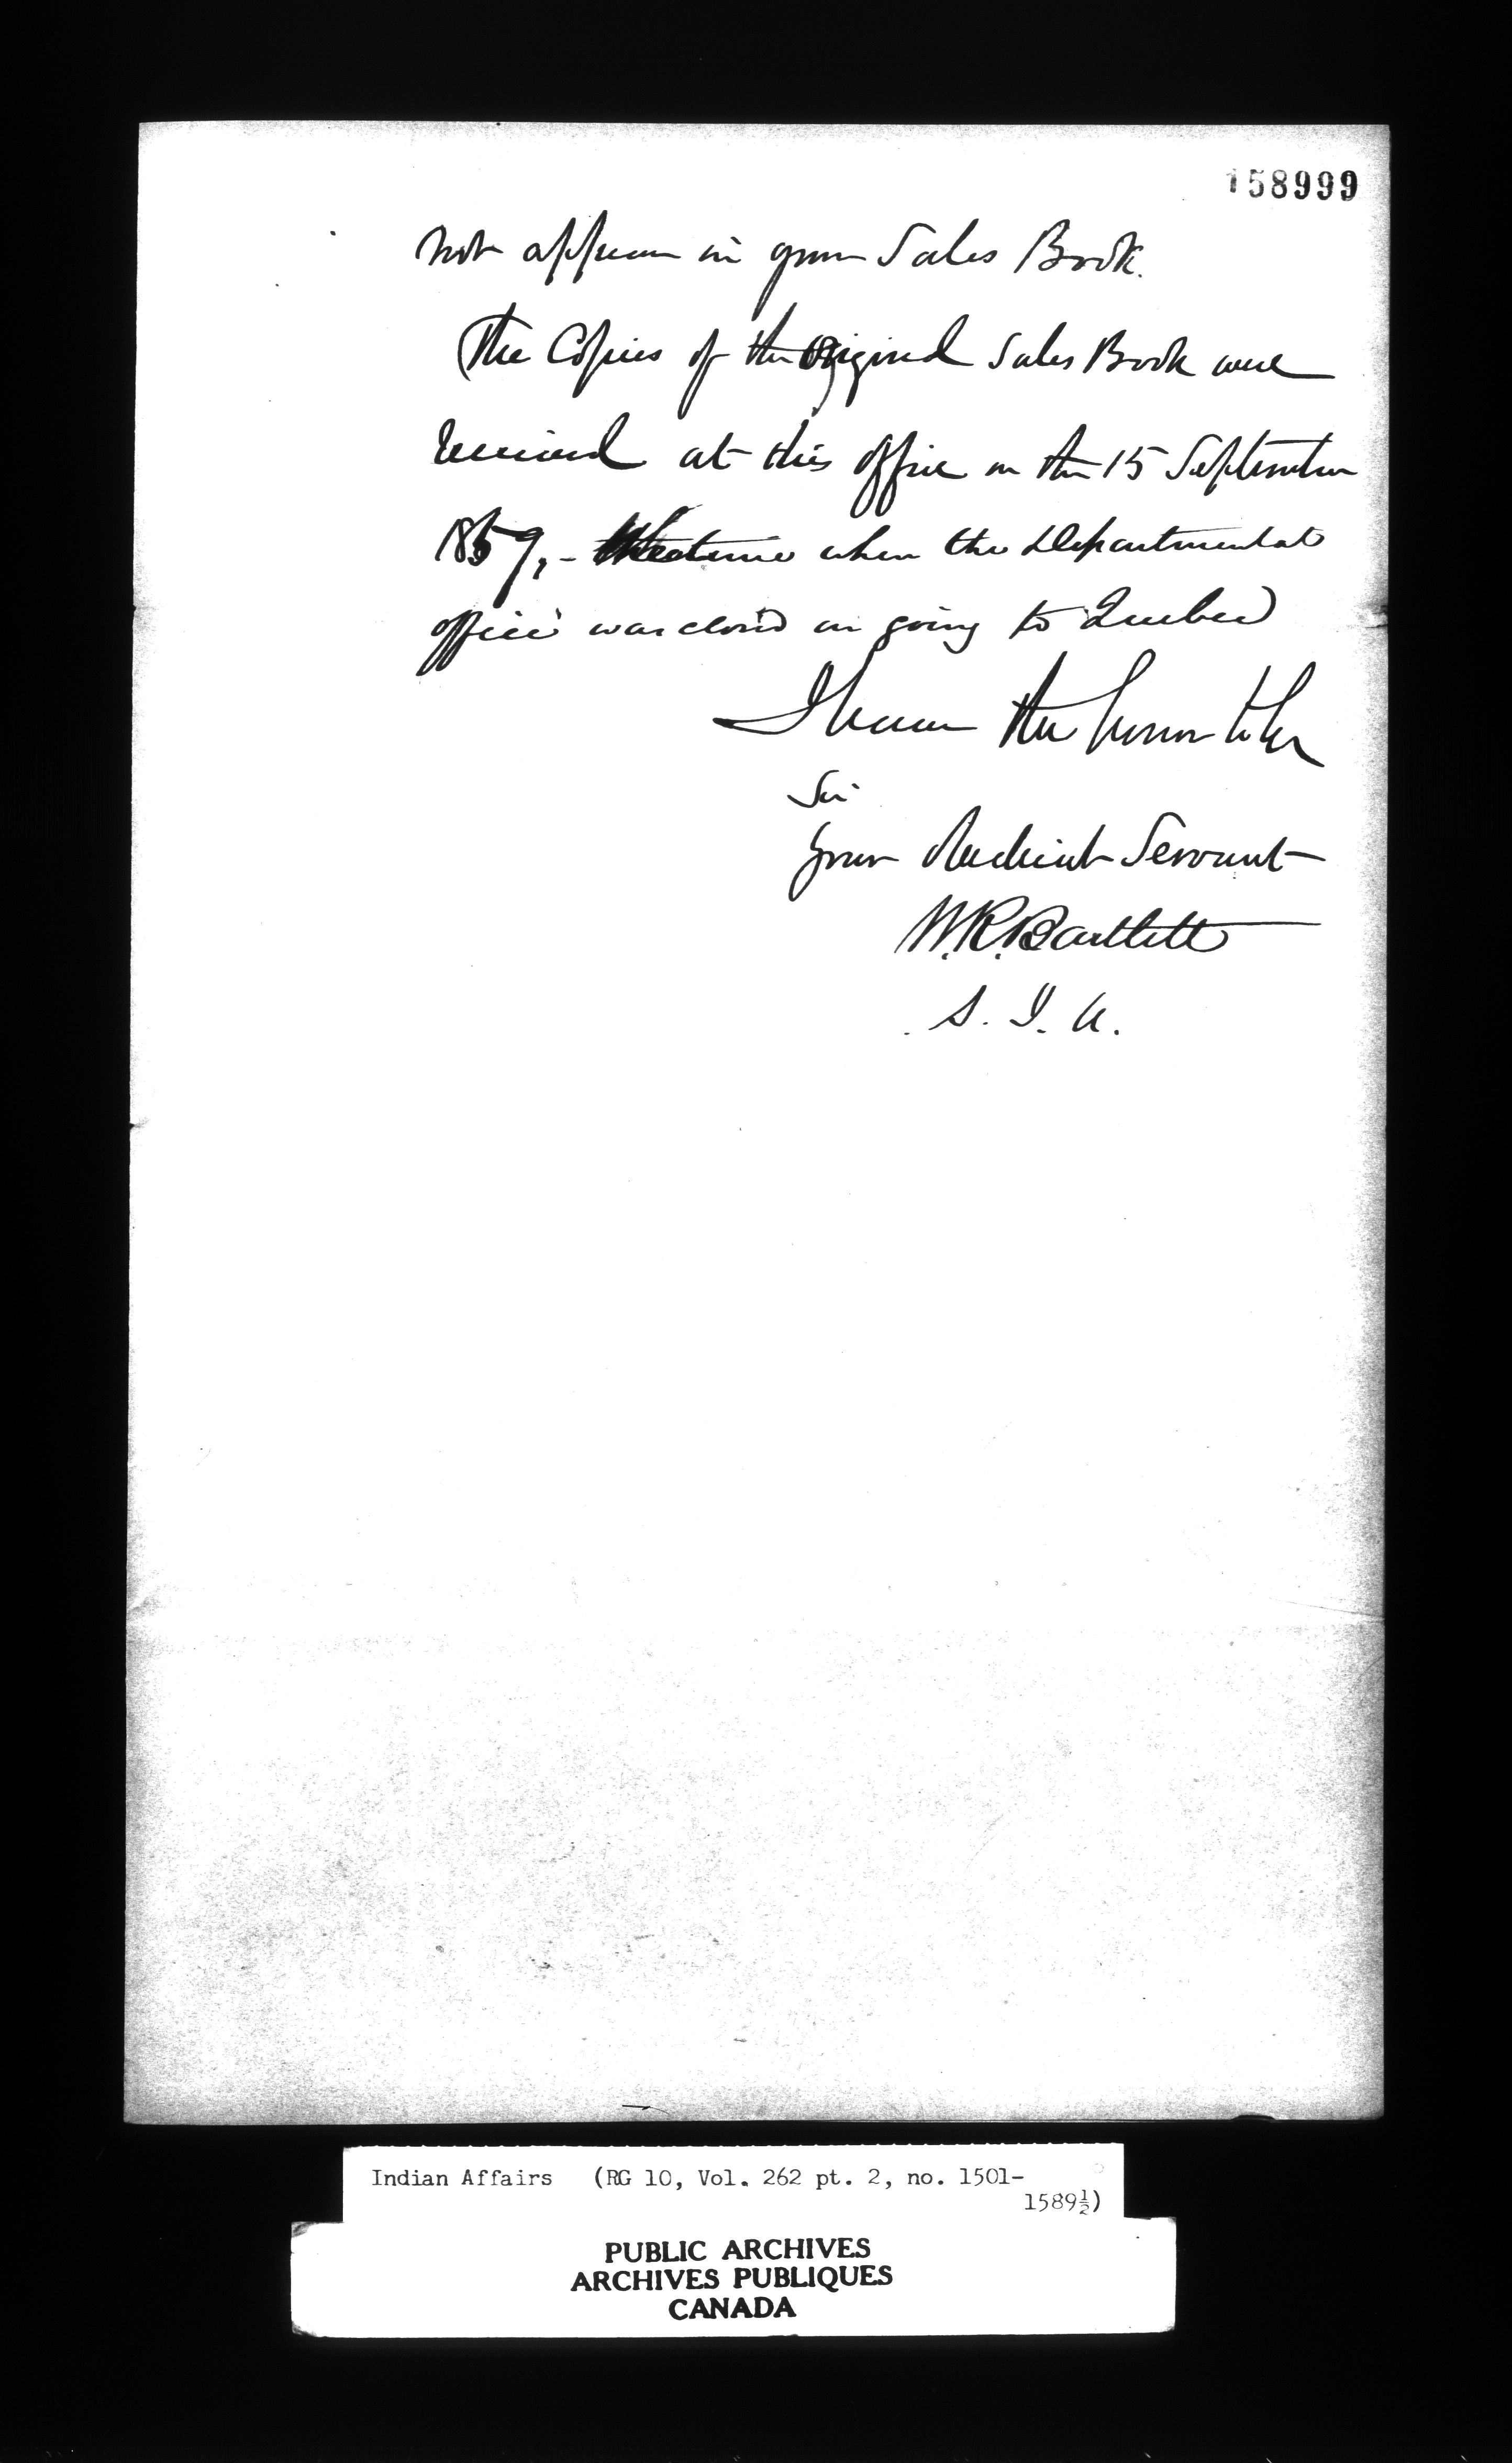 158999
not appear in your Sales Book.
The Copies of the Original Sales Book were
received at this office on the 15 September
1859, - the time when the Departmental
office was closed on going to Quebec
I have the honor to be
Sir
Your Obedient Servant
W.R. Bartlett
S. I. A.
Indian Affairs (RG 10, Vol. 262 pt. 2, no. 1501-
1589½)
PUBLIC ARCHIVES
ARCHIVES PUBLIQUES
CANADA